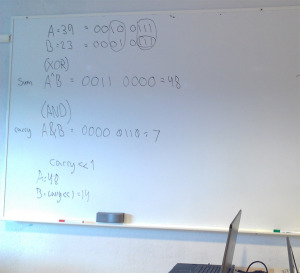 A=39 = 0010 0111
B=23 = 0001 0111
(XOR)
Sum A^B = 0011 0000 = 48
(AND)
carry A&B = 0000 0110 = 7
carry<<1
A=48
B=carry<<1=14